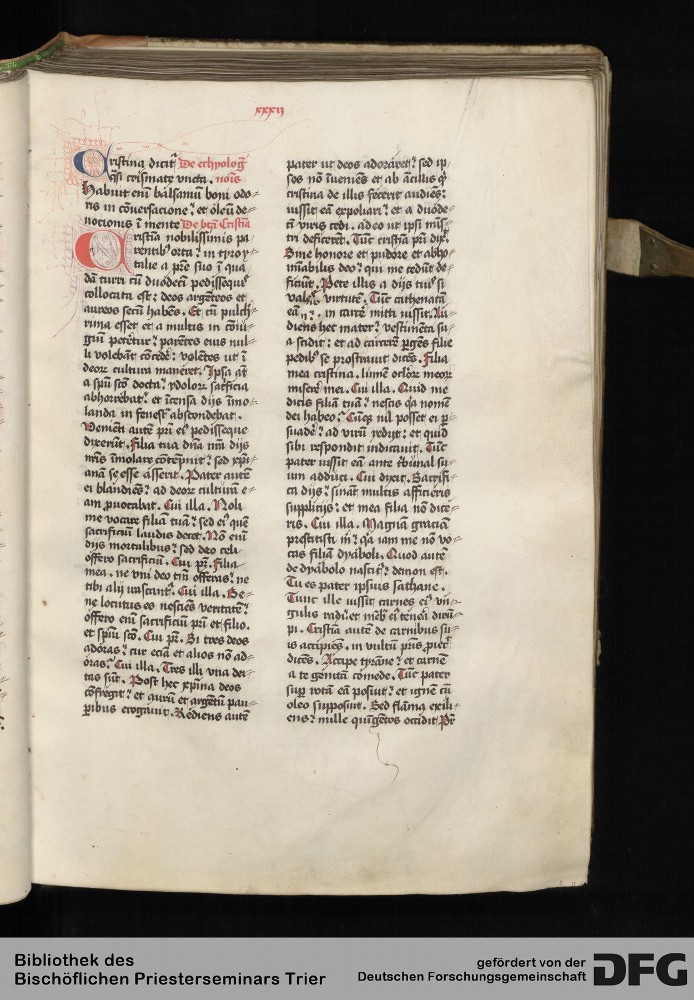 xxxij
Cristina dicit̃ De ethyolog̃
q̃si crismate vncta. nois
Habuit eni bàlsamũ boni odo
ris in cõuersacione: et óleũ de
uotionis ĩ mente De btã Cristĩa
Cristĩa nobilissimis pa
rentib⁹ orta: in tyro y
talie a p̃re suo ĩ qua
dã turri cũ duodeci pedissequis
collocata est: deos argẽteos et
aureos secũ habẽs. Et cũ pulch
rima esset et a multis in cõiu
giũ peteret̃: parẽtes eius nul
li volebãt cõcedẽ: volẽtes ut ĩ
deor cultura maneret. Ipsa aũt
a spũ scõ docta: ydolor sac̃ficia
abhorrebat: et ĩcensa dijs ĩmo
landa in fenest̃ abscondebat.
Venieñt autẽ pñ ei⁹ pedisseque
dixerũt. Filia tua dña nrã dijs
nr̃is ĩmolare cõtẽpnit: sed xp̃i
anã se esse ásserit. Pater autẽ
ei blandiẽs: ad deor culturã e
am prouocabat. Cui illa. Noli
me vocare filiã tuã: sed ei⁹ quẽ
sacrificiũ laudis decet. Nõ eni
dijs mortalibus: sed deo celi
offero sacrificiũ. Cui pr̃. Filia
mea. ne vni deo tm̃ offeras: ne
tibi alij irascant̃. Cui illa. Be
ne locutus es nesciẽs veritatẽ:
óffero eni sacrificiũ pr̃i et filio.
et spũi scõ. Cui pr̃. Si tres deos
adóras: cur eciã et alios nõ ad
óras: Cui illa. Tres illi vna dei
tas sũt. Post hec xp̃ina deos
cõfrẽgit: et aurũ et argẽtũ pau
peribus erogauit. Rediens autẽ
pater ut deos adoraret: sed ip
sos nõ ĩueniẽs et ab ãcillis q̃
cristina de illis fecerit audiẽs:
iussit eã expoliari: et a duóde
cĩ viris cedi. adeo ut ipsi mĩs
tri deficerẽt. Tũc cristĩa pr̃i dix̃.
Sine honore et pudóre et abho
mĩabilis deo: qui me cedũt de
ficiũt. Pete illis a dijs tuis si
vales virtutẽ. Tũc cathenatã
eã in carc̃e mitti iussit. Au
diens hec mater: vestimẽta su
a scidit: et ad carcerẽ p̃gẽs filie
pedib⁹ se prostrauit dicẽs. Filia
mea cristina. lumẽ oclor̃ meor
miserẽ mei. Cui illa. Quid me
dicis filiã tuã: nescis q̃a nomẽ
dei habeo: Cũq̃ nil posset ei p̃
suadẽ: ad virũ redijt: et quid
sibi respondit indicauit. Tũc
pater iussit eã ante t̃bũnal su
um addũci. Cui dixit. Sacrifi
ca dijs: sinãt multis afficieris
supplicijs: et mea filia nõ dice
ris. Cui illa. Magnã graciam
prestitisti m̃: q̃a iam me nõ vo
cas filiã dyáboli. Quod autẽ
de dyábolo nascit̃: demon est.
Tu es pater ipsius sathane.
Tunc ille iussit carnes ei⁹ vn
gulis radi: et mẽb̃ ei⁹ tenẽa dirũ
pi. Cristĩa autẽ de carnibus su
is accipiẽs. in vultũ pr̃is p̃iec̃
dicẽs. Accipe tyrãne: et carnẽ
a te genitã cõmede. Tũc pater
sup̃ rotã eã posuit: et ignẽ cũ
oleo supposuit. Sed flãma exili
ens: mille quĩgẽtos occidit. Pr̃
Bibliothek des
Bischöflichen Priesterseminars Trier
gefördert von der
Deutschen Forschungsgemeinschaft
DFG